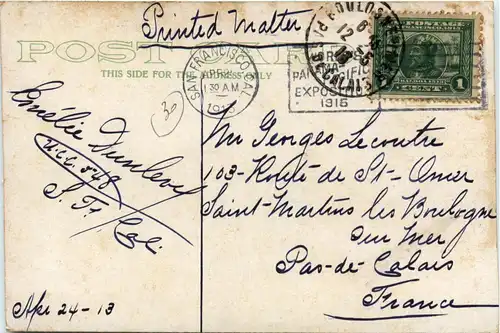 Printed Matter
POST CARD
THIS SIDE FOR THE ADDRESS ONLY
SAN FRANCISCO, CAL.
APR
1 30 AM
1913
PANAMA PACIFIC
EXPOSITION
1915
BOULOGNE
PAS DE CALAIS
U.S. POSTAGE
1 CENT 1
30
Emélie Dunlevy
U.C.C. 548
S. F. Cal.
Apr 24-13
Mr Georges Lecoutre
103-Route de St-Omer
Saint-Martins les Boulogne
sur Mer
Pas-de-Calais
France